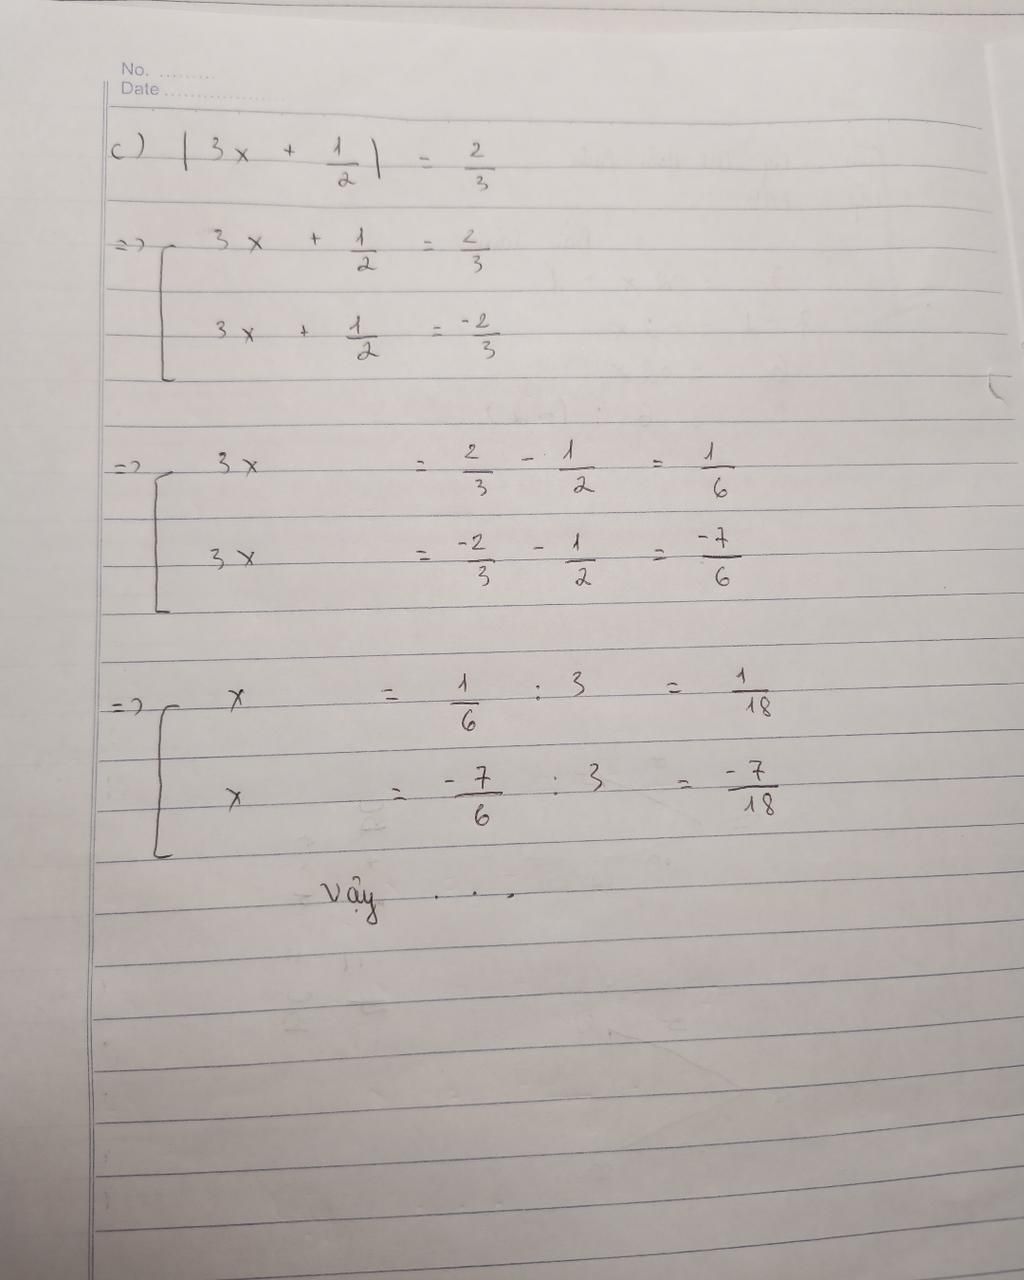 No. .........
Date ..................
c) | 3x + 1/2 | = 2/3
=> [ 3x + 1/2 = 2/3
3x + 1/2 = -2/3
=> [ 3x = 2/3 - 1/2 = 1/6
3x = -2/3 - 1/2 = -7/6
=> [ x = 1/6 : 3 = 1/18
x = -7/6 : 3 = -7/18
Vậy . . .